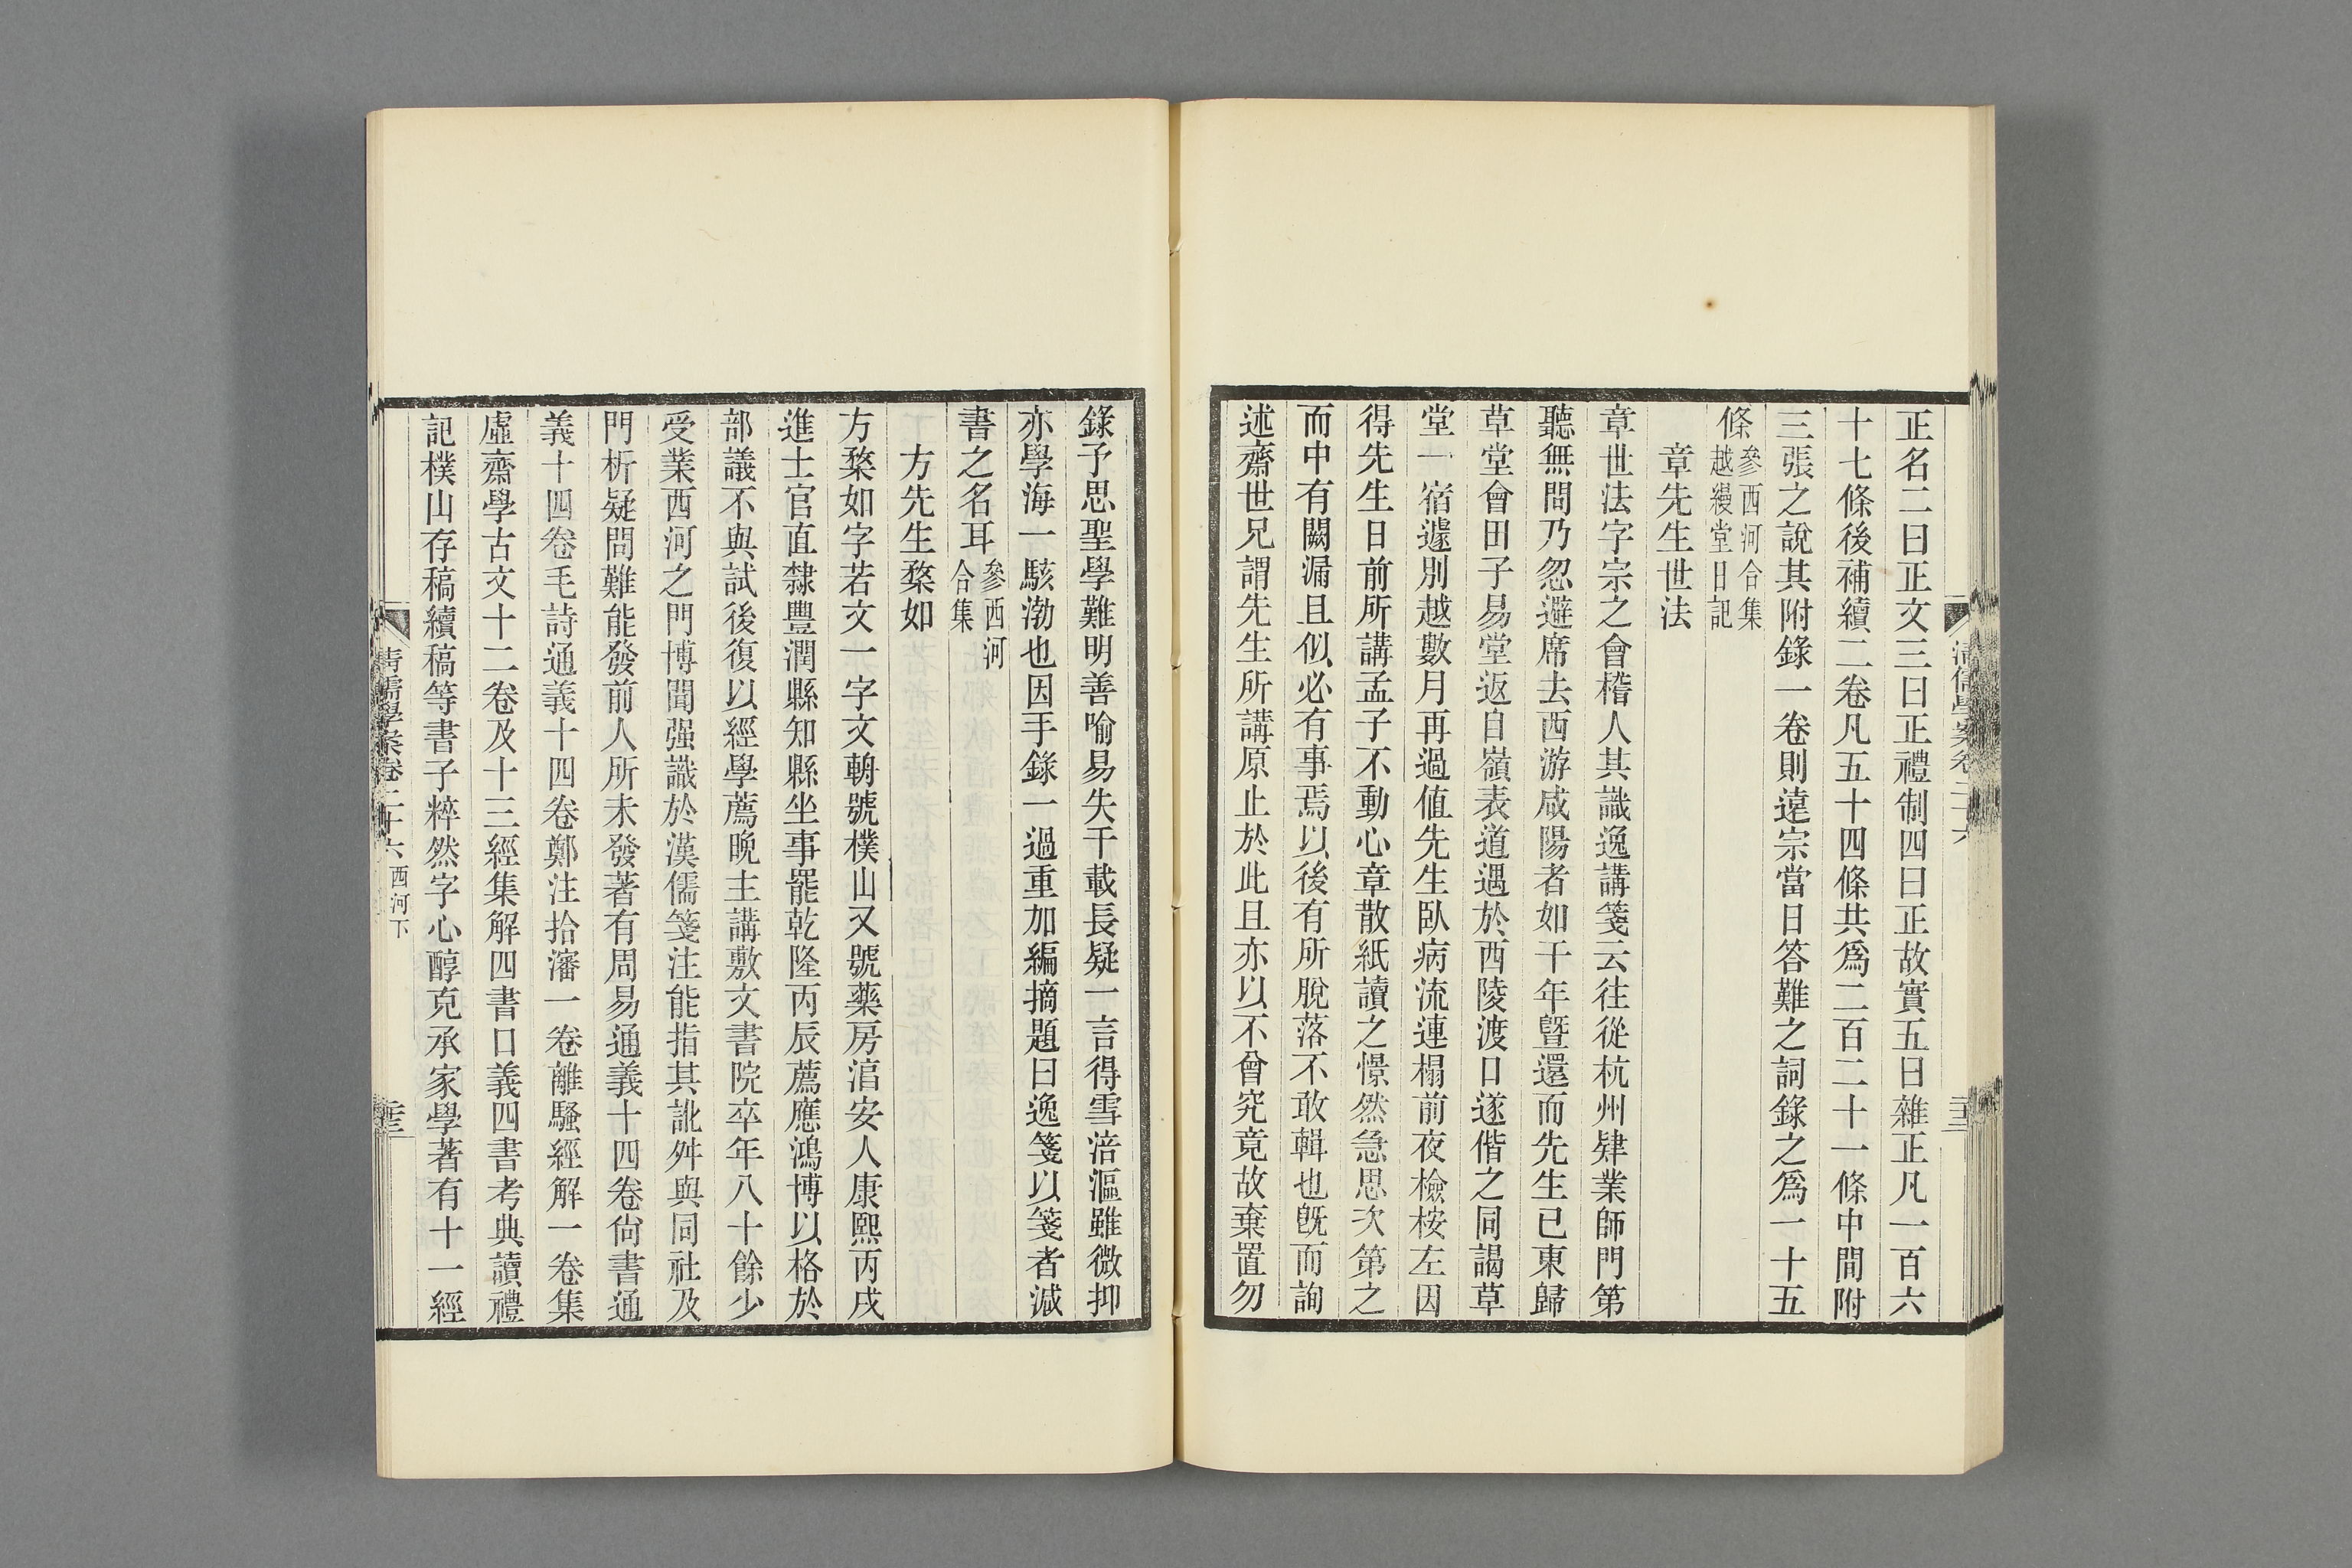 正名二曰正文三曰正禮制四曰正故實五曰雜正凡一百六
十七條後補續二卷凡五十四條共爲二百二十一條中間附
三張之說其附錄一卷則遠宗當日答難之詞錄之爲一十五
條參西河合集
越縵堂日記
章先生世法
章世法字宗之會稽人其識逸講箋云往從杭州肄業師門第
聽無問乃忽避席去西游咸陽者如干年曁還而先生已東歸
草堂會田子易堂返自嶺表道遇於西陵渡口遂偕之同謁草
堂一宿遽別越數月再過值先生臥病流連榻前夜檢桉左因
得先生日前所講孟子不動心章散紙讀之憬然急思次第之
而中有闕漏且似必有事焉以後有所脫落不敢輯也旣而詢
述齋世兄謂先生所講原止於此且亦以不曾究竟故棄置勿
錄予思聖學難明善喻易失千載長疑一言得雪涪漚雖微抑
亦學海一駭渤也因手錄一過重加編摘題曰逸箋以箋者減
書之名耳參西河
合集
方先生楘如
方楘如字若文一字文輈號樸山又號藥房淯安人康熙丙戌
進士官直隸豐潤縣知縣坐事罷乾隆丙辰薦應鴻博以格於
部議不與試後復以經學薦晚主講敷文書院卒年八十餘少
受業西河之門博聞强識於漢儒箋注能指其訛舛與同社及
門析疑問難能發前人所未發著有周易通義十四卷尙書通
義十四卷毛詩通義十四卷鄭注拾瀋一卷離騷經解一卷集
虛齋學古文十二卷及十三經集解四書口義四書考典讀禮
記樸山存稿續稿等書子粹然字心醇克承家學著有十一經
清儒學案卷二十六 西河下